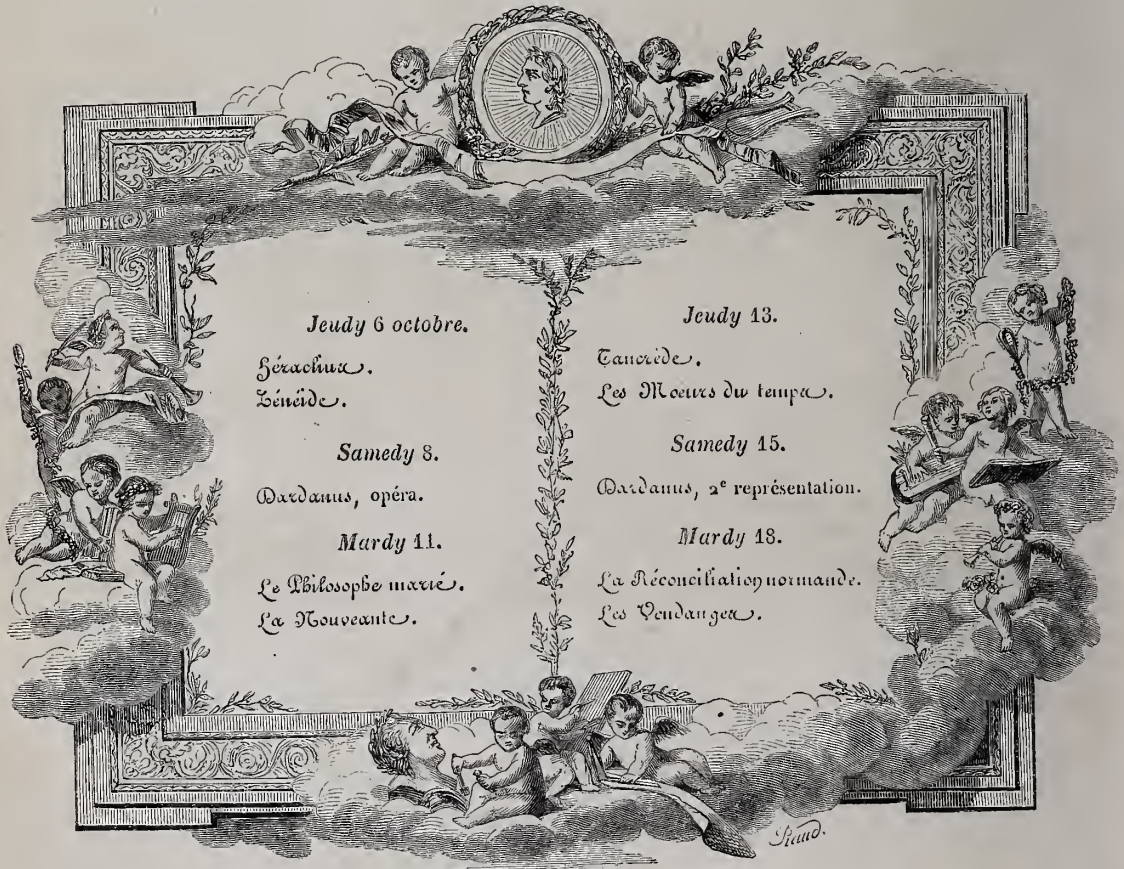 Jeudy 6 octobre.
Héraclius.
Zénéide.
Samedy 8.
Dardanus, opéra.
Mardy 11.
Le Philosophe marié.
La Nouveauté.
Jeudy 13.
Tancrède.
Les Moeurs du temps.
Samedy 15.
Dardanus, 2e représentation.
Mardy 18.
La Réconciliation normande.
Les Vendanges.